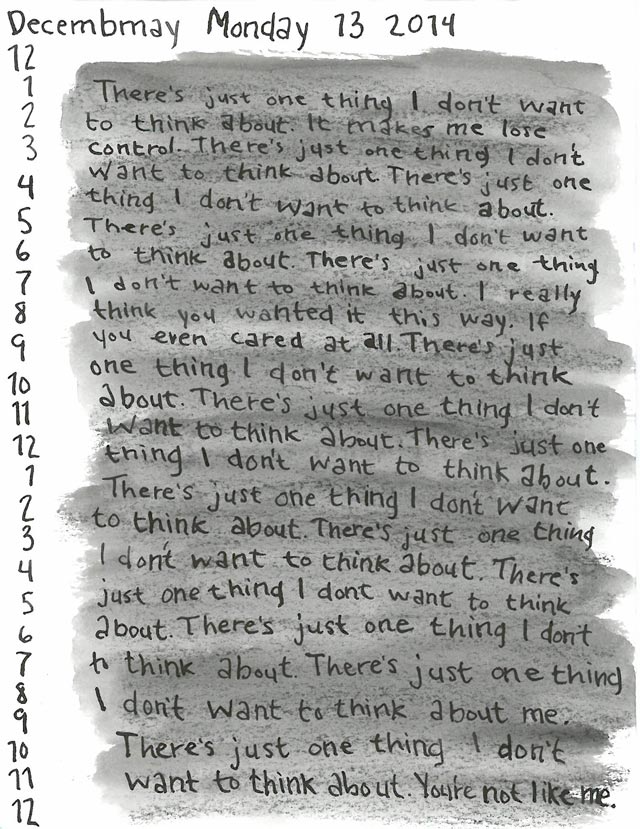 Decembmay Monday 13 2014
12
1
2
3
4
5
6
7
8
9
10
11
12
1
2
3
4
5
6
7
8
9
10
11
12
There's just one thing I don't want
to think about. It makes me lose
control. There's just one thing I don't
want to think about. There's just one
thing I don't want to think about.
There's just one thing I don't want
to think about. There's just one thing
I don't want to think about. I really
think you wanted it this way. If
you even cared at all. There's just
one thing I don't want to think
about. There's just one thing I don't
want to think about. There's just one
thing I don't want to think about.
There's just one thing I don't want
to think about. There's just one thing
I don't want to think about. There's
just one thing I dont want to think
about. There's just one thing I don't
to think about. There's just one thing
I don't want to think about me.
There's just one thing I don't
want to think about. You're not like me.